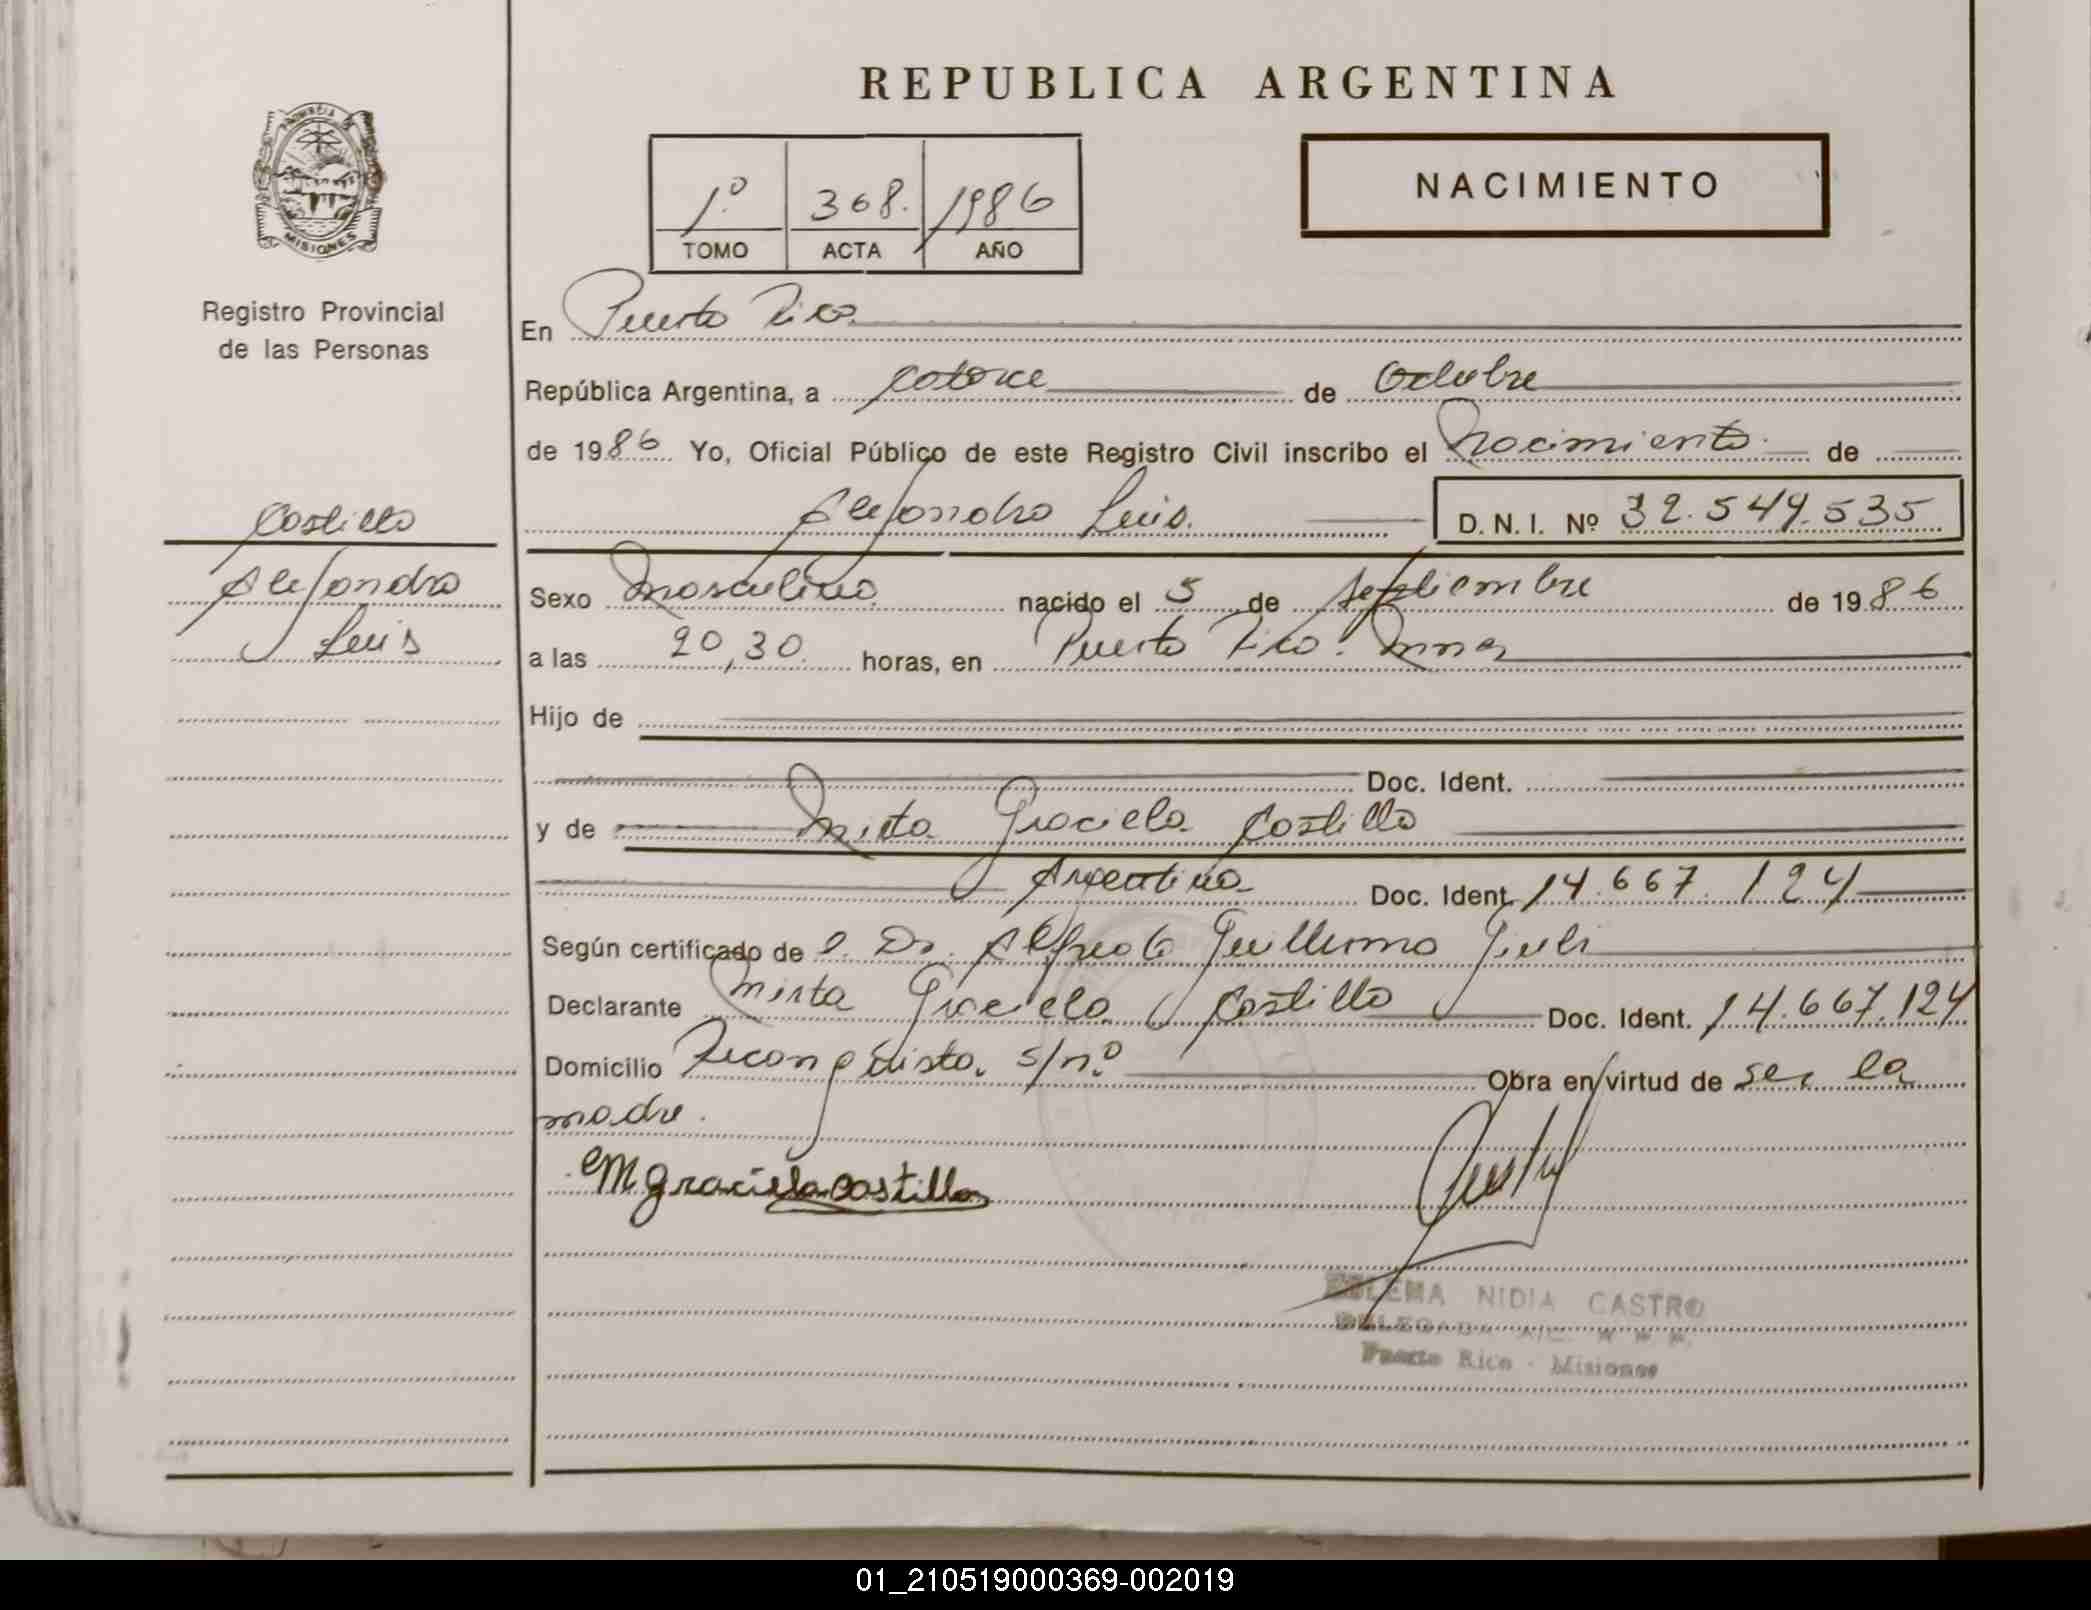 REPUBLICA ARGENTINA
PROVINCIA DE
MISIONES
Registro Provincial
de las Personas
1º 368. 1986
TOMO ACTA AÑO
NACIMIENTO
En Puerto Rico
República Argentina, a catorce de Octubre
de 1986 Yo, Oficial Público de este Registro Civil inscribo el Nacimiento de
Alejandro Luis. D. N. I. Nº 32.549.535
Castillo
Alejandro
Luis
Sexo Masculino nacido el 5 de Septiembre de 1986
a las 20,30 horas, en Puerto Rico. Mnes
Hijo de
Doc. Ident.
y de Mirta Graciela Castillo
Argentina Doc. Ident. 14.667.124
Según certificado de l. Dr. Alfredo Guillermo
Declarante Mirta Graciela Castillo Doc. Ident. 14.667.124
Domicilio Reconquista. s/nº Obra en virtud de ser la
madre.
M Graciela Castillo
NIDIA CASTRO
DELEGADA
Puerto Rico - Misiones
01_210519000369-002019